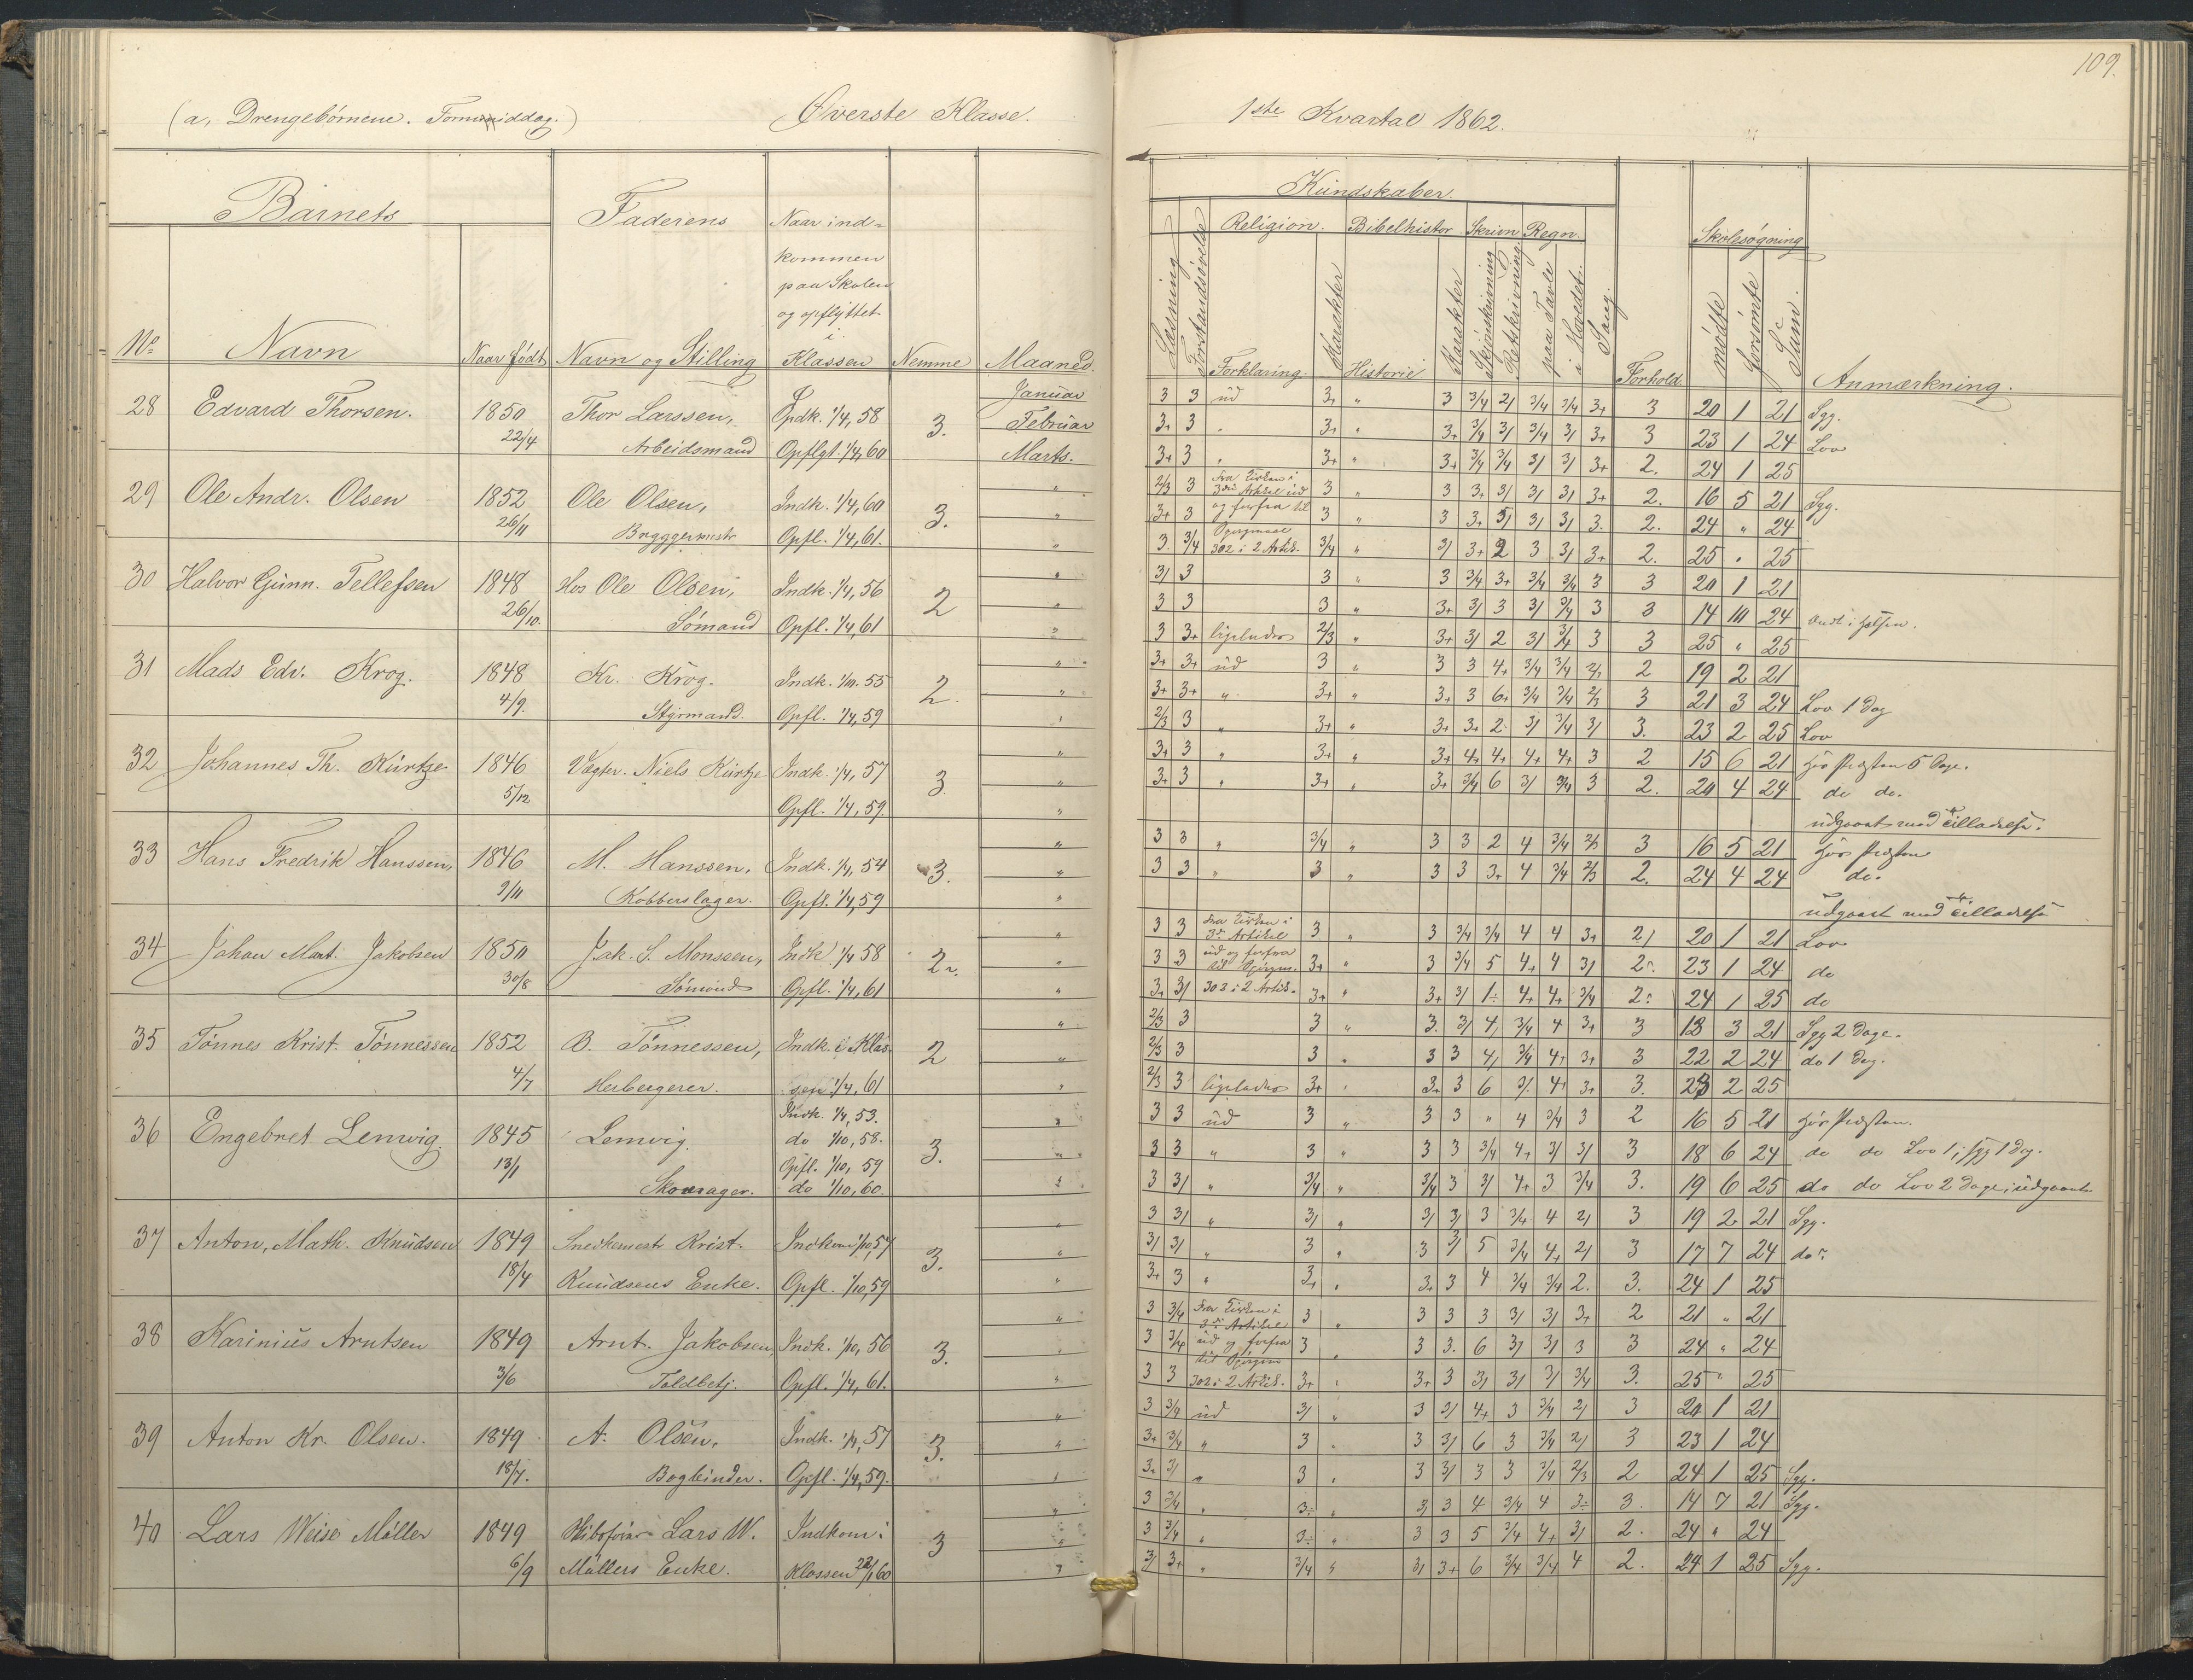 109.
(a, Drengebørnene. Formiddag.) Øverste Klasse. 1ste Kvartal 1862.
Barnets Faderens Naar ind=
kommen
paa Skolen
og opflyttet
i
No Navn Naar født Navn og Stilling Klassen Nemme Maaned.
Kundskaber.
Religion. Bibelhistor. Skrivn. Regn. Skolesøgning
Læsning Forstandsøvelse Forklaring Karakter Historie Karakter Skjønskrivning Retskrivning paa Tavle i Hovedet. Sang. Forhold mødte forsømte Sum. Anmærkning.
28 Edvard Thorsen. 1850 Thor Larssen, Indk. 1/4, 58 3. Januar 3 3 ud 3+ " 3 3/4 2/ 3/4 3/4 3+ 3 20 1 21 Syg.
22/4 Arbeidsmand Opflgt. 1/4, 60 Februar 3+ 3 " 3+ " 3+ 3/4 3/ 3/4 3/ 3+ 3 23 1 24 Lov
Marts. 3+ 3 " 3+ " 3+ 3/4 3/4 3/ 3/ 3+ 2. 24 1 25
29 Ole Andr. Olsen 1852 Ole Olsen, Indk. 1/4, 60 3. " 2/3 3 Fra Kirken i 3die Artikel ud 3 " 3 3+ 3/ 3/ 3/ 3+ 2. 16 5 21 Syg.
26/11 Bryggermestr Opfl. 1/4, 61. " 3+ 3 og forfra til 3 " 3 3+ 5/ 3/ 3/ 3. 2. 24 " 24
" 3. 3/4 Spørgsmaal 302 i 2 Artik. 3/4 " 3/ 3+ 2 3 3/ 3+ 2. 25 " 25
30 Halvor Gunn. Tellefsen 1848 Hos Ole Olsen, Indk. 1/4, 56 2 " 3/ 3 3 " 3 3/4 3+ 3/4 3/4 3 3 20 1 21
26/10. Sømand Opfl. 1/4, 61 " 3 3 3 " 3+ 3/ 3 3/ 3/4 3 3 14 10 24
" 3 3+ ligeledes 2/3 " 3+ 3/ 2 3/ 3/4 3 3 25 " 25
31 Mads Edv. Krog. 1848 Kr. Krog. Indk. 1/10. 55 2. " 3+ 3+ ud 3 " 3 3 4+ 3/4 3/4 2/3 2 19 2 21
4/9. Styrmand. Opfl. 1/4, 59 " 3+ 3+ " 3+ " 3+ 3 6+ 3/4 3/4 2/3 3 21 3 24 Lov 1 Dag
" 2/3 3 " 3+ " 3+ 3+ 2 3/ 3/4 3/ 3. 23 2 25 Lov
32 Johannes Th. Kürtze 1846 Vægter. Niels Kürtze Indk. 1/4, 57 3. " 3+ 3 " 3+ " 3+ 4+ 4+ 4+ 4+ 3 2 15 6 21 hos Præsten 5 Dage.
5/12 Opfl. 1/4, 59. " 3+ 3 " 3+ " 3+ 3/4 6 3/ 3/4 3 2. 20 4 24 do do.
" udgaaet med Tilladelse.
33 Hans Fredrik Hanssen, 1846 M. Hanssen, Indk. 1/4, 54 3. " 3 3 " 3/4 " 3 3 2 4 3/4 2/3 3 16 5 21 hos Præsten
9/11 Kobberslager. Opfl. 1/4, 59 " 3 3 " 3 " 3 3 3+ 4 3/4 2/3 2. 24 4 24 do.
" udgaaet med Tilladelse
34 Johan Mart. Jakobsen 1850 Jak. S. Monssen, Indk 1/4 58 2 " 3 3 Fra Kirken i 3die Artikel 3 " 3 3/4 3/4 4 4 3+ 2/ 20 1 21 Lov
30/8 Sømand Opfl. 1/4, 61 " 3 3 ud og forfra til Spørgsm. 3+ " 3 3/4 5 4+ 4 3/ 2 23 1 24 do
" 3+ 3/ 302 i 2 Artik. 3+ " 3+ 3/ 1÷ 4+ 4+ 3/4 2 24 1 25 do
35 Tønnes Krist. Tønnessen 1852 B. Tønnessen, Indk. i Klas- 2 " 2/3 3 3 " 3. 3/ 4, 3/4 4 3+ 3 18 3 21 Syg 2 Dage.
4/7 Herbergerer. sen 1/4, 61 " 2/3 3 3 " 3 3 4, 3/4 4+ 3+ 3 22 2 24 do 1 Dag.
" 2/3 3 ligeledes 3+ " 3+ 3 6 3/ 4+ 3+ 3. 23 2 25
36 Engebret Lemvig. 1845 Lemvig. Indk. 1/4, 53. 3. " 3 3 ud 3 " 3 3 " 4 3/4 3 2 16 5 21 hos Præsten.
13/1 do 1/10, 58. " 3 3 " 3 " 3 3 3/4 4+ 3/ 3/ 3 18 6 24 do do Lov 1; syg 1 Dag.
Opfl. 1/10, 59
Skomager. do 1/10, 60. " 3 3/ " 3/4 " 3/4 3 3/ 4+ 3 3/4 3. 19 6 25 do do Lov 2 Dage; udgaaet.
37 Anton, Math. Knudsen 1849 Snedkermestr Krist. Indkom 1/10, 57 3. " 3 3/ " 3/ " 3/ 3/ 3 3/4 4 2/ 3 19 2 21 Syg.
18/4 Knudsens Enke. Opfl. 1/10, 59 " 3/ 3/ " 3 " 3 3/ 5 3/4 4+ 2/ 3 17 7 24 do.
" 3+ 3 " 3+ " 3+ 3 4 3/4 3/4 2. 3. 24 1 25
38 Karinius Arntsen 1849 Arnt. Jakobsen, Indk. 1/10, 56 3. " 3 3/4 Fra Kirken i 3die Artikel 3 " 3 3 3 3/ 3/ 3+ 2 21 " 21
3/6 Toldbetj. Opfl. 1/4, 61. " 3 3/4 ud og forfra til Spørgsm 3 " 3 3. 6 3/ 3/ 3 3 24 " 24
" 3 3 302 i 2 Artik. 3+ " 3+ 3 3/ 3/ 3/ 3/4 3. 25 " 25
39 Anton Kr. Olsen. 1849 A. Olsen, Indk. 1/4, 57 3. " 3 3/4 ud 3/ " 3 3/ 4+ 3 3/4 2/ 3 20 1 21
18/7. Bogbinder. Opfl. 1/4, 59. " 3+ 3/4 " 3 " 3 3/ 6 3 3/4 2/ 3 23 1 24
" 3+ 3/ " 3 " 3 3/ 3 3 3/4 2/3 2 24 1 25 Syg.
40 Lars Weise Møller 1849 Lars W. Indkom i 3 " 3 3/4 " 3÷ " 3/ 3 4 3/4 4 3÷ 3. 14 7 21 Syg.
6/9 Møllers Enke. Klassen 22/1 60 " 3 3/4 " 3÷ " 3 3 5 3/4 4+ 3/ 2. 24 " 24
" 3/ 3+ " 3/4 " 3/ 3+ 6 3/4 3/4 4 2. 24 1 25 Syg.